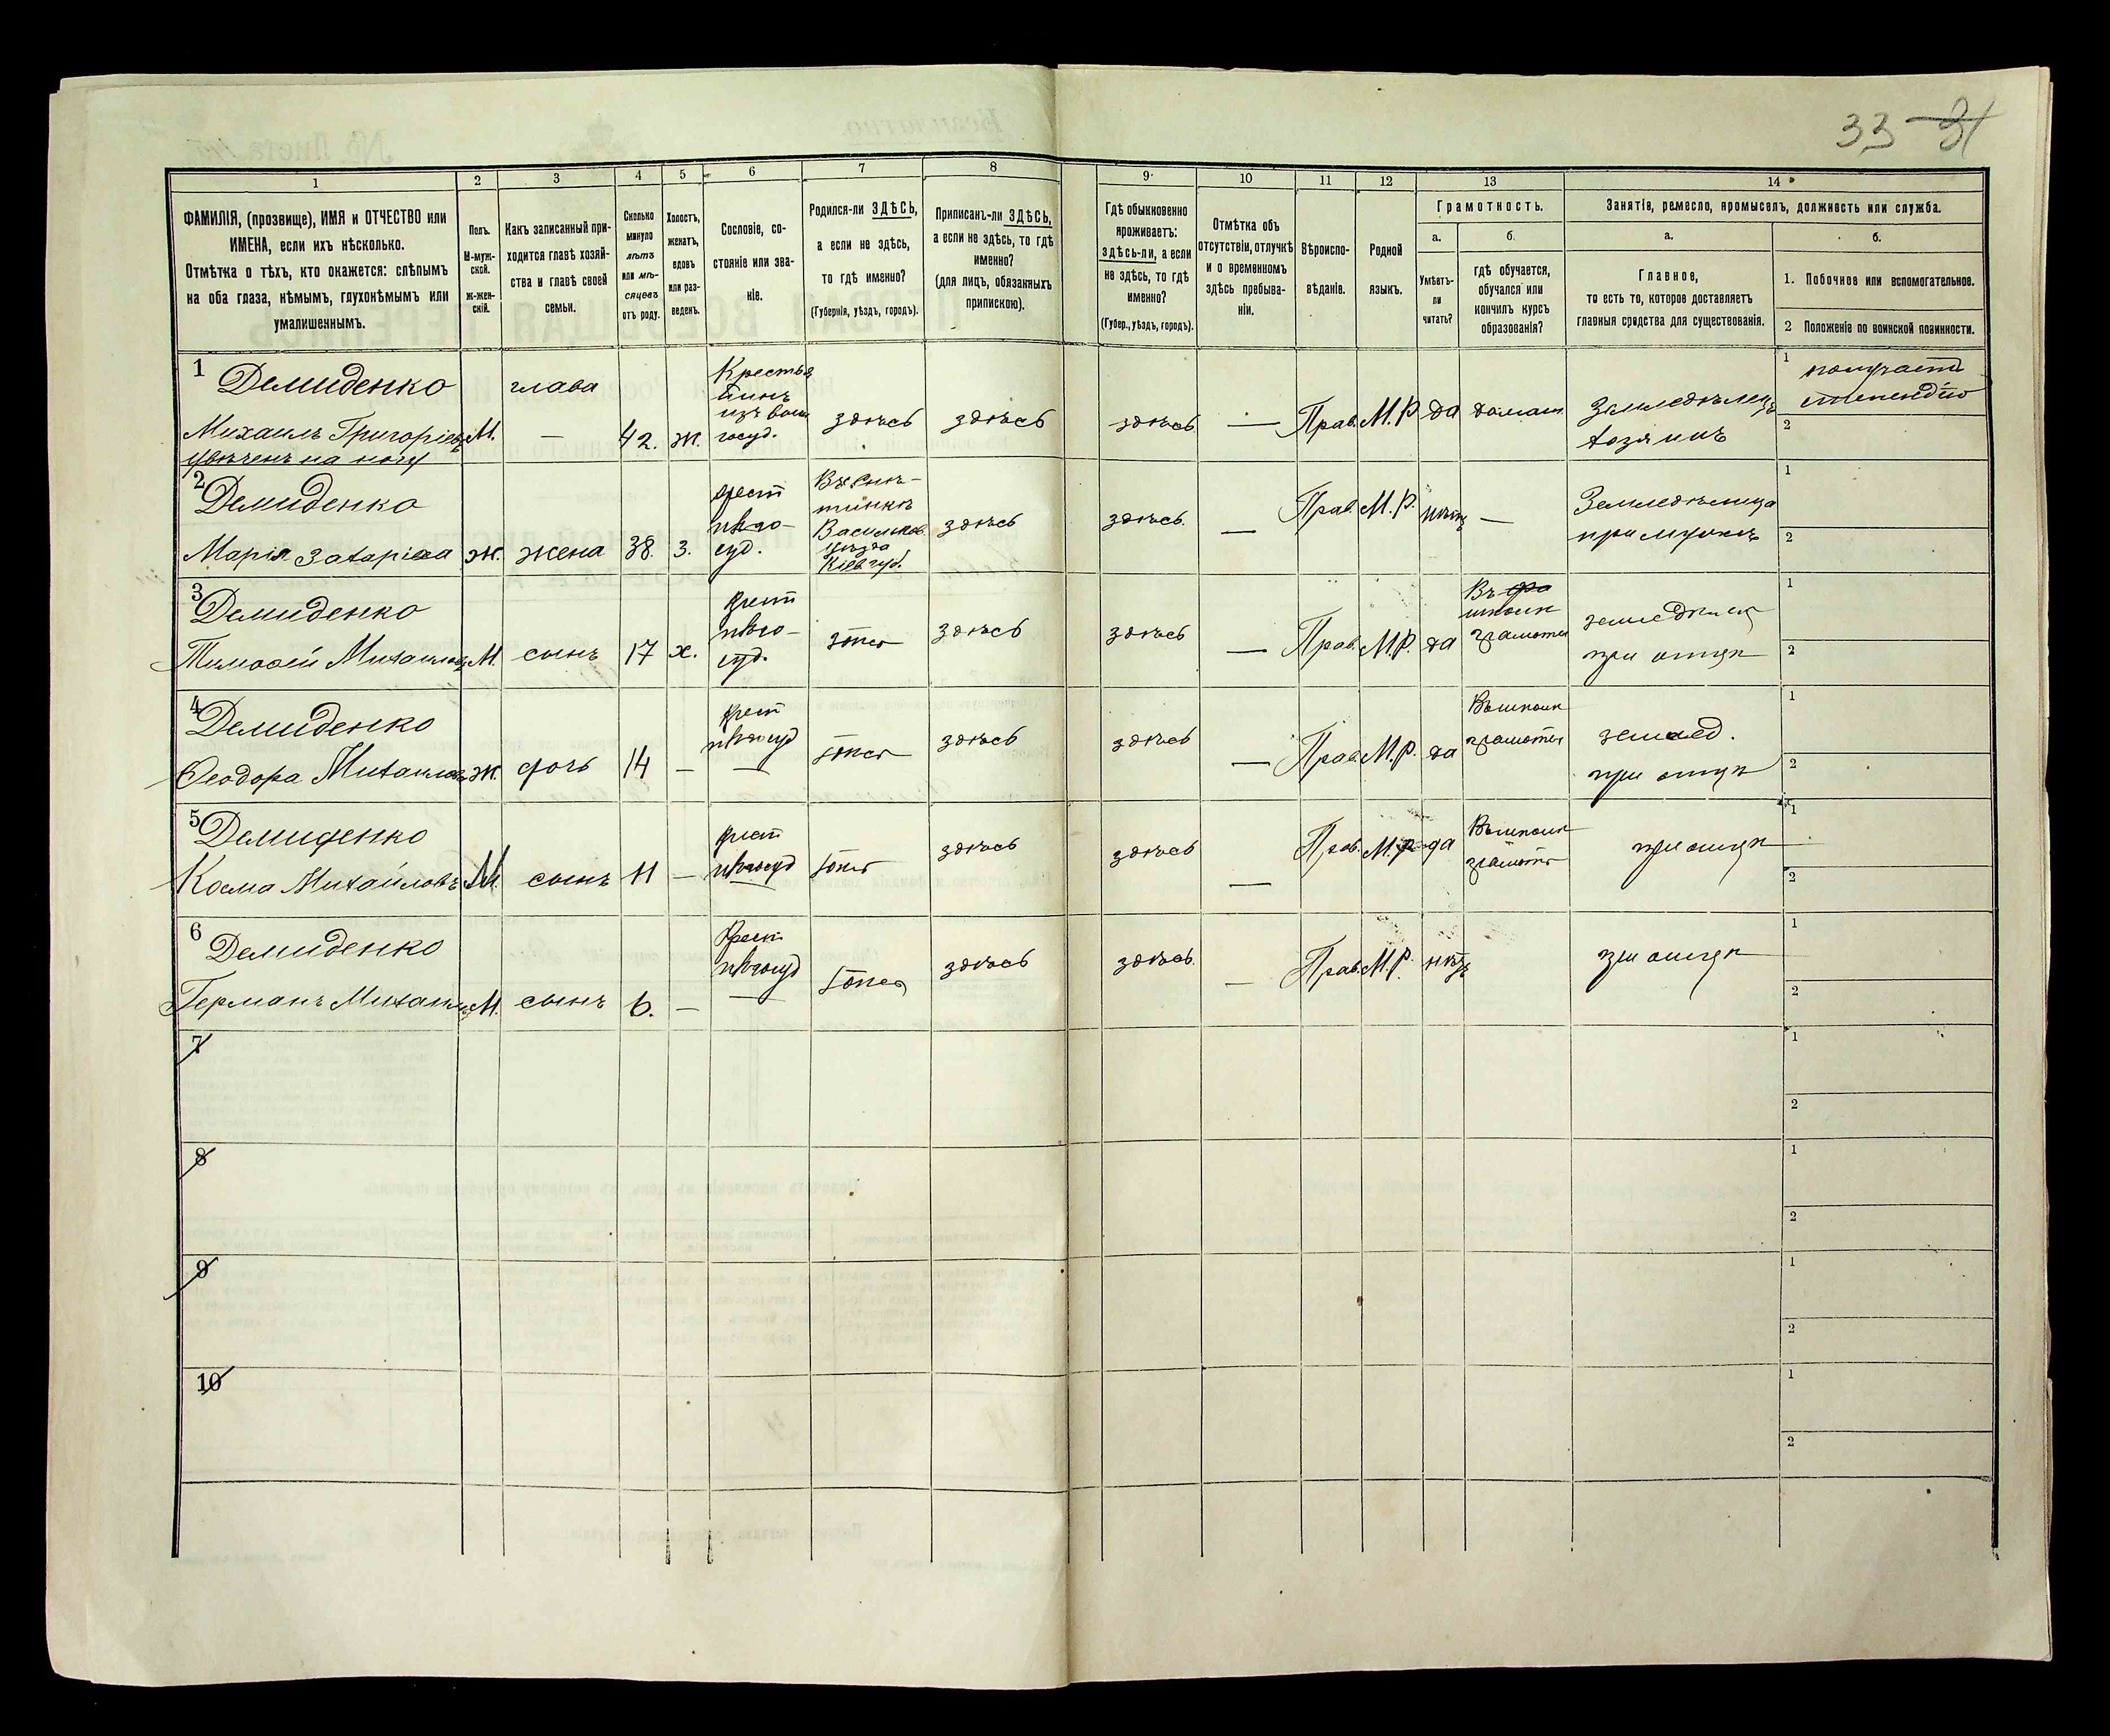 33 31
1 2 3 4 5 6 7 8 9 10 11 12 13 14
ФАМИЛІЯ, (прозвище), ИМЯ и ОТЧЕСТВО или
ИМЕНА, если ихъ нѣсколько.
Отмѣтка о тѣхъ, кто окажется: слѣпымъ
на оба глаза, нѣмымъ, глухонѣмымъ или
умалишеннымъ.
Полъ.
М-муж-
ской.
ж-жен-
скій.
Какъ записанный при-
ходится главѣ хозяй-
ства и главѣ своей
семьи.
Сколько
минуло
лѣтъ
или мѣ-
сяцевъ
отъ роду.
Холостъ,
женатъ,
вдовъ
или раз-
веденъ.
Сословіе, со-
стояніе или зва-
ніе.
Родился-ли ЗДѢСЬ,
а если не здѣсь,
то гдѣ именно?
(Губернія, уѣздъ, городъ).
Приписанъ-ли ЗДѢСЬ,
а если не здѣсь, то гдѣ
именно?
(для лицъ, обязанныхъ
припискою).
Гдѣ обыкновенно
проживаетъ:
здѣсь-ли, а если
не здѣсь, то гдѣ
именно?
(Губер., уѣздъ, городъ).
Отмѣтка объ
отсутствіи, отлучкѣ
и о временномъ
здѣсь пребыва-
ніи.
Вѣроиспо-
вѣданіе.
Родной
языкъ.
Грамотность.
а.
Умѣетъ-
ли
читать?
б.
гдѣ обучается,
обучался или
кончилъ курсъ
образованія?
Занятіе, ремесло, промыселъ, должность или служба.
а.
Главное,
то есть то, которое доставляетъ
главныя средства для существованія.
б.
1. Побочное или вспомогательное.
2 Положеніе по воинской повинности.
1 Демиденко глава Крестья
нинъ
Михаилъ Григоріевъ М. — 42. ж. госуд. здѣсь здѣсь здѣсь — Прав. М.Р. да домаш. Земледѣлецъ
хозяинъ
увѣченъ на ногу
1 получаетъ
2
2 Демиденко
Марія Захаріева ж. жена 38. з. крест
суд.
Васильков.
уѣзда
Кіев губ.
здѣсь здѣсь. — Прав. М.Р. нѣтъ — Земледѣлица
при мужѣ
1
2
3 Демиденко
Тимофей Михаиловъ М. сынъ 17 х. крест
суд.
здѣсь здѣсь — Прав. М.Р. да Въ
школѣ
грамоты
при отцѣ
1
2
4 Демиденко
Феодора Михаилов ж. дочь 14 — крест
—
здѣсь здѣсь — Прав. М.Р. да Въ школѣ
грамоты
землед.
при отцѣ
1
2
5 Демиденко
Косма Михайловъ М. сынъ 11 — крест
здѣсь здѣсь — Прав. М.Р. да Въ школѣ
грамоты
при отцѣ
1
2
6 Демиденко
Германъ Михаил М. сынъ 6. — Крест
—
здѣсь здѣсь. — Прав. М.Р. нѣтъ
при отцѣ
1
2
7
1
2
8
1
2
9
1
2
10
1
2